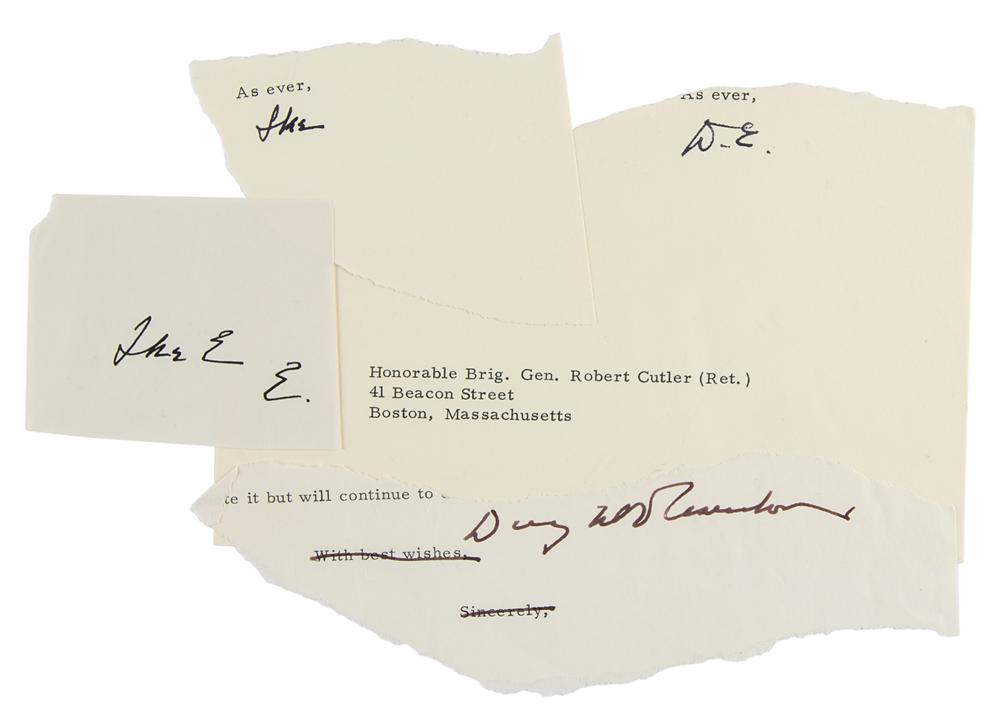 As ever,
Ike
As ever,
D.E.
Ike E
E.
Honorable Brig. Gen. Robert Cutler (Ret.)
41 Beacon Street
Boston, Massachusetts
it but will continue to
Dwight D Eisenhower
With best wishes,
Sincerely,